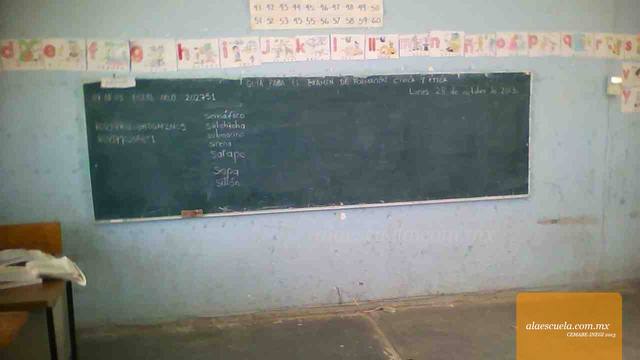 41 42 43 44 45 46 47 48 49 50
51 52 53 54 55 56 57 58 59 60
d e f g h i j k l ll m n ñ o p q r s
GUIA PARA EL EXAMEN DE FORMACION CIVICA Y ETICA
Lunes 28 de octubre de 2013
semáforo
salchicha
submarino
sirena
Sarape
Sopa
sillón
alaescuela.com.mx
CEMABE-INEGI 2013